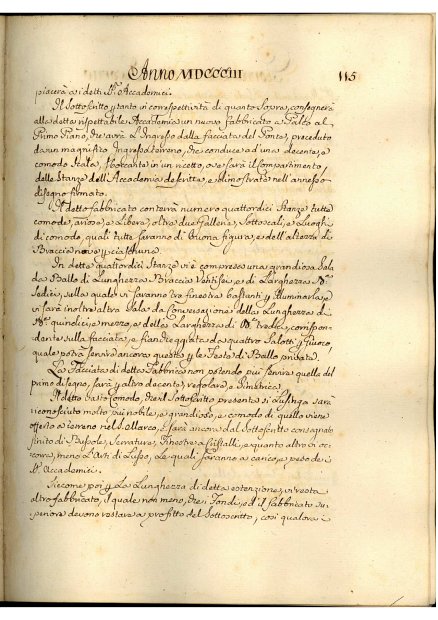 Anno MDCCCIII 115
piacerà a i detti Sri. Accademici.
Il Sottoscritto ptanto in correspettività di quanto Sopra, consegnerà
alla detta rispettabile Accademia un nuovo fabbricato a Palco al
Primo Piano, che avrà L'Ingresso dalla facciata del Ponte, preceduto
da un magnifico Ingresso terreno, che conduce ad una decente, e
comodo Scala, sboccante in un ricetto, ove sarà il compartimento,
delle Stanze dell'Accademia descritte, e dimostrate nell'annesso
disegno firmato.
Il detto fabbricato conterrà numero quattordici Stanze tutte
comode, ariose, e Libere, oltre due Gallerie, Sottoscali, e Luoghi
di comodo, quali tutte saranno di buona figura, e dell'altezza di
Braccia nove p ciascheuna.
In dette quattordici Stanze vi è compreso una grandiosa Sala
da Ballo di Lunghezza Braccia Ventisei, e di Larghezza Ba.
Sedici, sulla quale vi saranno tre finestre bastanti p Illuminarla, e
vi sarà inoltre altra Sala da Conversazione della Lunghezza di
Ba. quindici, e mezzo, e della Larghezza di Ba. tredici, corrispon-
dente sulla facciata, e fiancheggiata da quattro Salotti p Giuoco,
quale potrà servire ancora questo p le Feste di Ballo private.
La Facciata di detta Fabbrica non potendo più servire quella del
primo disegno, sarà p altro decente, regolare, e Simetrica.
Il detto Casto comodo, che il Sottoscritto presenta si Lusinga sarà
riconosciuto molto più nobile, e grandioso, e comodo di quello viene
offerto a terreno nel Collarco, e sarà ancora dal Sottoscritto consegnato
finito di Bussole, Serrature, Finestre a Cristalli, e quanto altro vi oc-
corra, meno L'Arti di Lusso, Le quali saranno a carico, e peso de i
Sri. Accademici.
Siccome poi p La Lunghezza di detta estenzione, vi resta
altro fabbricato, il quale non meno, che i Fondi, ed il fabbricato su-
periore devono restare a profitto del Sottoscritto, così qualora i